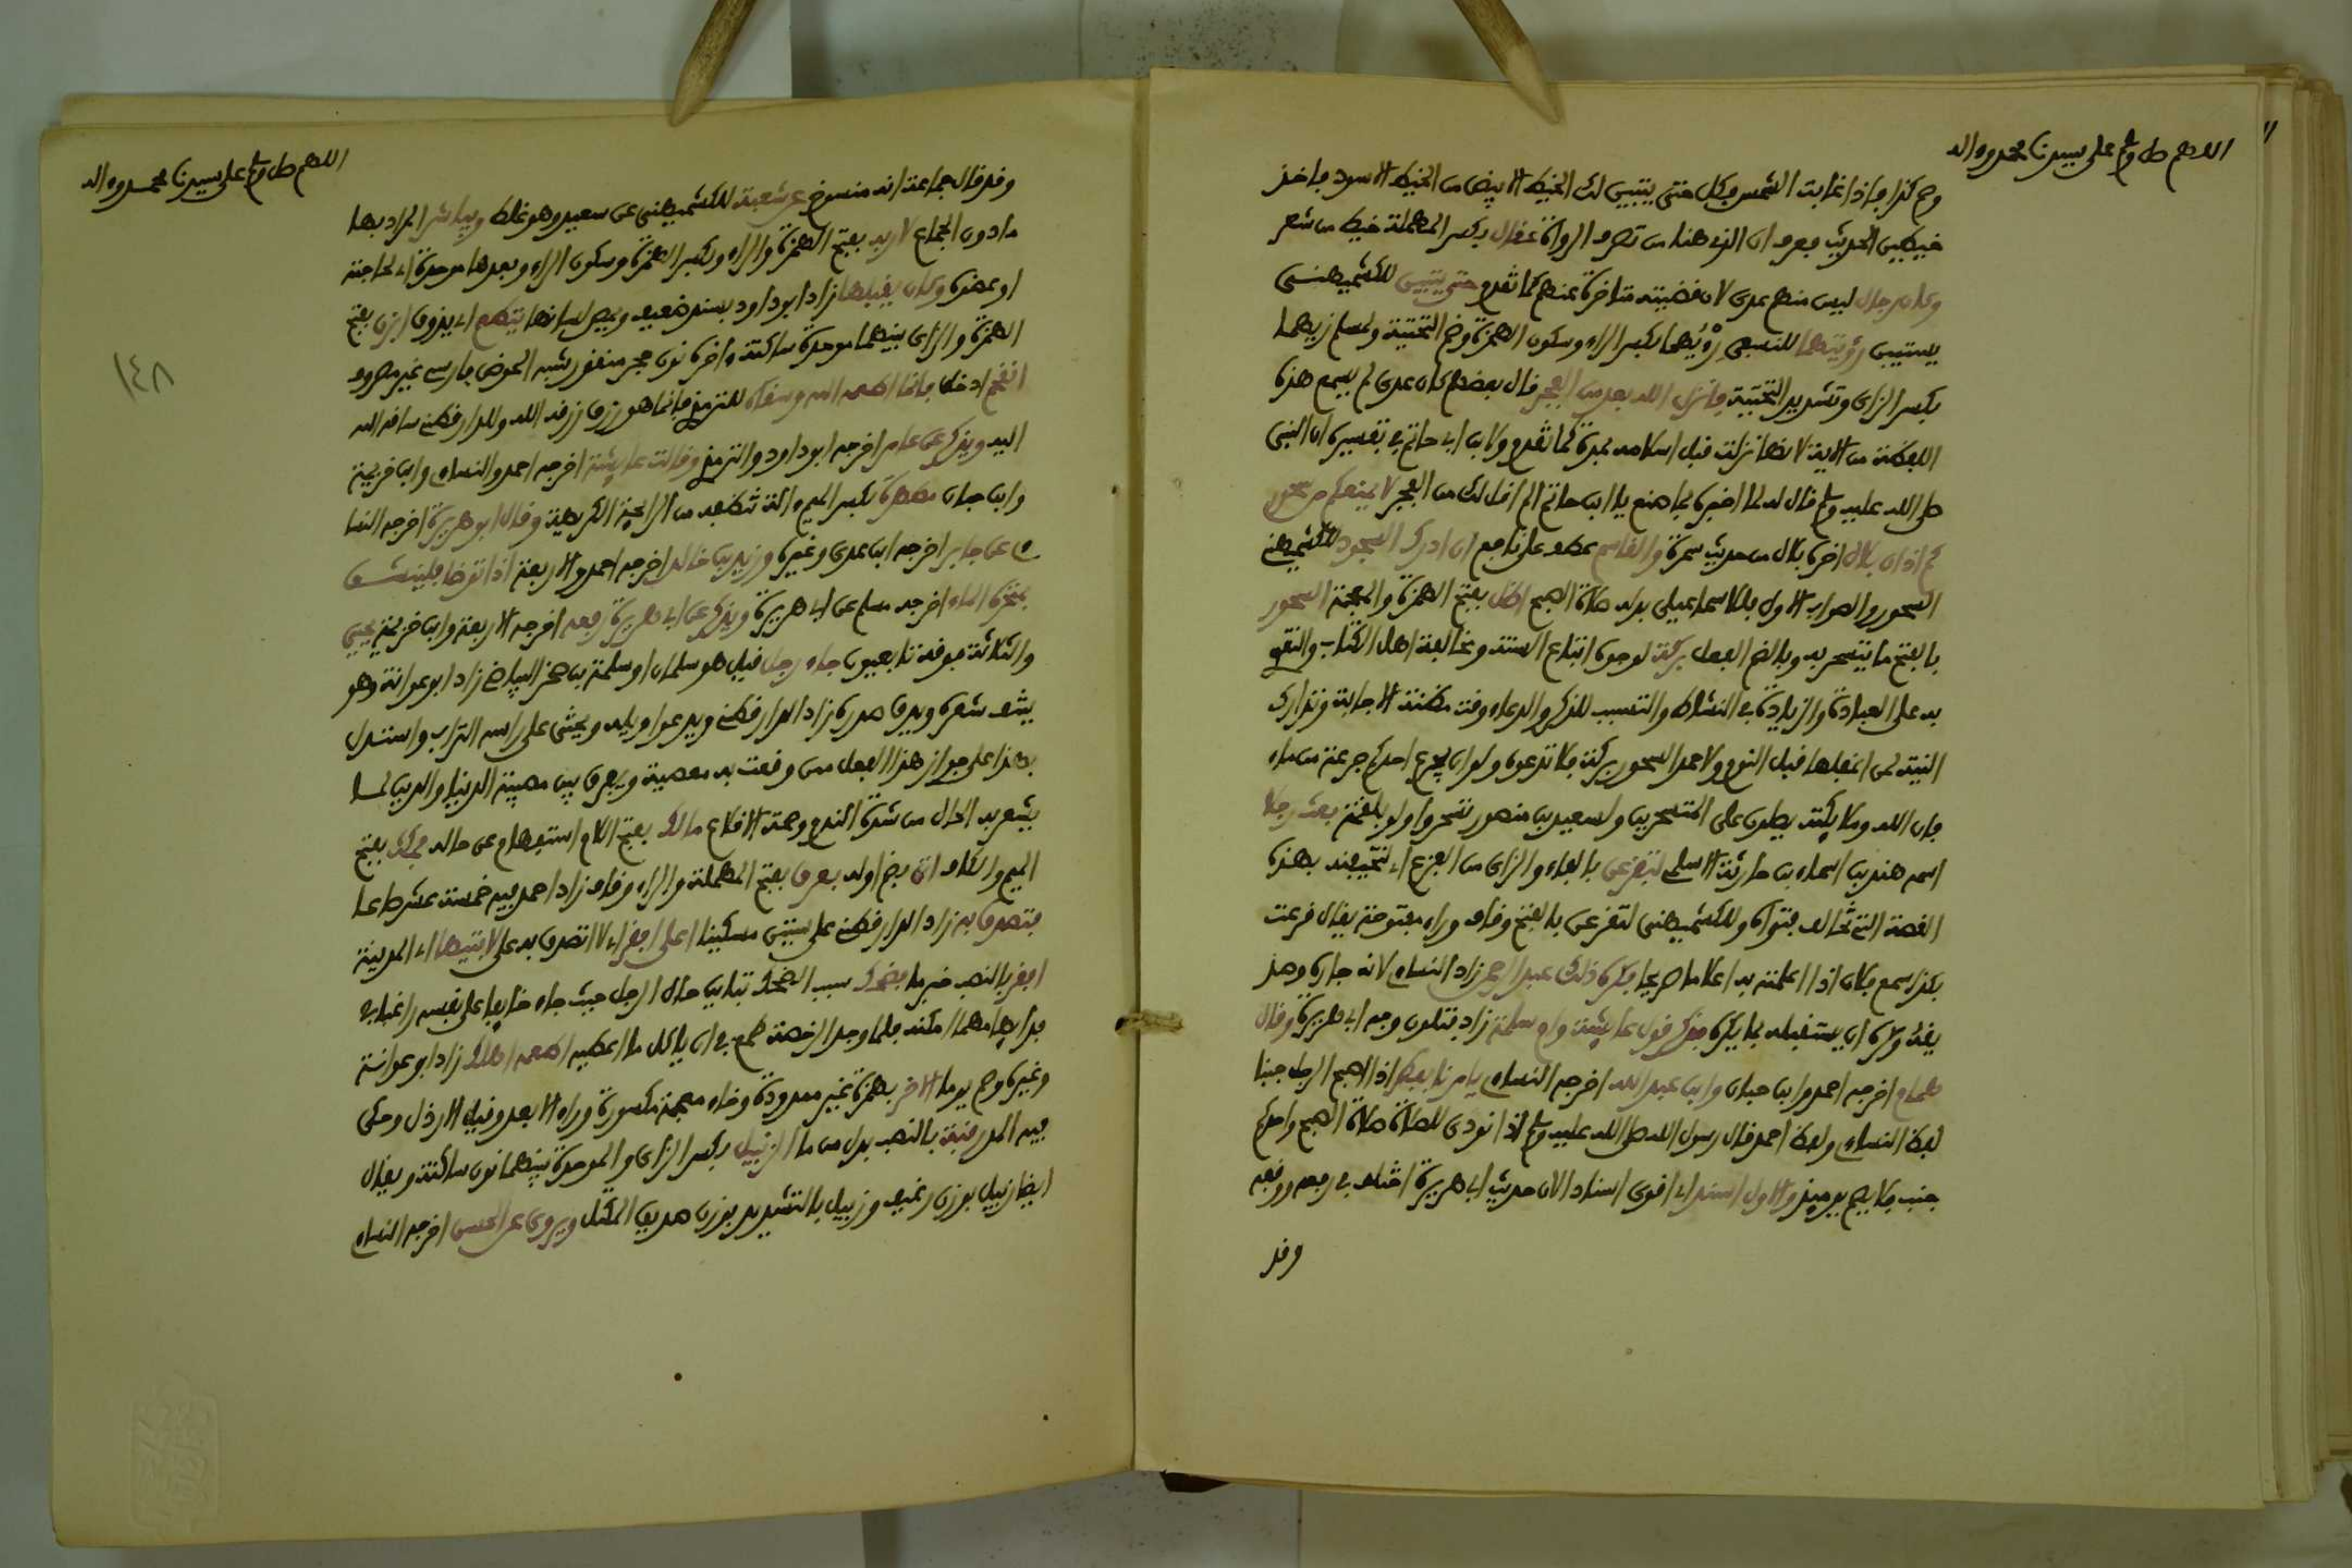 اللهم صل وسلم على سيدنا محمد وءاله
وصم كذا فإذا غابت الشمس فكل حتى يتبين لك الخيط الابيض من الخيط الاسود فاخذ
خيطين الحديث فعرف ان الذي هنا من تصرف الرواة عقال بكسر المهملة خيط من شعر
وكان رجال ليس منهم عدي لان قضيته متاخرة عنهم كما تقدم حتى يتبين للكشميهني
يستبين رؤيتهما للنسفي رئيهما بكسر الراء وسكون الهمزة وضم التحتية ولمسلم زيهما
بكسر الزاي وتشديد التحتية فانزل الله بعد من الفجر قال بعضهم كان عدي لم يسمع هذه
اللفظة من الاية لانها نزلت قبل اسلامه بمدة كما تقدم ولابن ابي حاتم في تفسيره ان النبي
صلى الله عليه وسلم قال له لما اخبره بما صنع يا ابن حاتم الم اقل لك من الفجر لا يمنعكم من سحوركم
اذان بلال اخره بلال من حديث سمرة والقاسم عطف على نافع ان ادرك السجود للكشميهني
السحور والصواب الاول بللاسماعيلي بدله صلاة الصبح اكل بفتح الهمزة والمعجمة السحور
بالفتح ما يتسحر به وبالضم الفعل بركة لوجوه اتباع السنة ومخالفة اهل الكتاب والتقوي
به على العبادة والزيادة في النشاط والتسبب للذكر والدعاء وقت مظنة الاجابة وتدارك
النية لمن اغفلها قبل النوم ولاحمد السحور بركة فلا تدعوه ولو ان يجرع احدكم جرعة من ماء
فان الله وملايكته يصلون على المتسحرين ولسعيد بن منصور تسحروا ولو بلقمة بعث رجلا
اسمه هند بن اسماء بن حارثة الاسلمي لتفزعن بالفاء والزاي من الفزع اي لتخيفنه بهذه
القصة التي تخالف فتواه وللكشميهني لتقرعن بالفتح وقاف وراء مفتوحة يقال قرعت
بكذا سمع فلان اذا اعلمته به اعلاما صريحا فكره ذلك عبد الرحمن زاد النساي لانه جاره وصديقه
وكره ان يستقبله بما يكره فذكر قول عايشة وام سلمة زاد فتلون وجه ابي هريرة وقال
همام اخرجه احمد وابن حبان وابن عبد الله اخرجه النساي يامر بالفطر اذا اصبح الرجل جنبا
لفظ النساي ولفظ احمد قال رسول الله صلى الله عليه وسلم اذا نودي للصلاة صلاة الصبح واحدكم
جنب فلا يصم يوميذ والاول اسند اي اقوى اسنادا لان حديث ابي هريرة اختلف في رفعه ووقفه
وقد
اللهم صل وسلم على سيدنا محمد وءاله
وقد قال جماعة انه منسوخ عن شعبة للكشميهني عن سعيد وهو غلط ويباشر المراد بها
ما دون الجماع لاربه بفتح الهمزة والراء وبكسر الهمزة وسكون الراء وبعدها موحدة اي لحاجته
او عضوه وكان يقبلها زاد ابو داود بسند ضعيف ويمص لسانها يتطعم اي يذوق ابزن بفتح
الهمزة والزاي بينهما موحدة ساكنة واخره نون حجر منقور شبه الحوض فارسي غير مصروف
اتقحم ادخل فانما اطعمه الله وسقاه للترمذي فانما هو رزق رزقه الله وللدارقطني ساقه الله
اليه ويذكر عن عامر اخرجه ابو داود والترمذي وقالت عايشة اخرجه احمد والنساي وابن خزيمة
وابن حبان مطهرة بكسر الميم ءالة تنظفه من الرايحة الكريهة وقال ابو هريرة اخرجه النسا
ي عن جابر اخرجه ابن عدي وغيره وزيد بن خالد اخرجه احمد والاربعة اذا توضا فليستنشق
بمنخره الماء اخرجه مسلم عن ابي هريرة ويذكر عن ابي هريرة رفعه اخرجه الاربعة وابن خزيمة يحيى
والثلاثة فوقه تابعيون جاء رجل قيل هو سلمان او سلمة بن صخر البياضي زاد ابو عوانة وهو
ينتف شعره ويدق صدره زاد الدارقطني ويدعوا ويله ويحثي على راسه التراب واستدل
بهذا على جواز هذا الفعل ممن وقعت به معصية ويفرق بين مصيبة الدنيا والدين لما
يشعر به الحال من شدة الندم وصحة الاقلاع مالك بفتح اللام استفهام عن حاله فمكث بفتح
الميم والكاف اتي بضم اوله بعرق بفتح المهملة والراء وقاف زاد احمد فيه خمسة عشر صاعا
فتصدق به زاد الدارقطني على ستين مسكينا اعلى افقر اي لا اتصدق به على لابتيها اي المدينة
افقر بالنصب خبر ما فضحك سبب الضحك تباين حال الرجل حيث جاء خايفا على نفسه راغبا في
فدايها مهما امكنه فلما وجد الرخصة طمع في ان ياكل ما اعطيه اطعمه اهلك زاد ابو عوانة
وغيره وصم يوما الاخر بهمزة غير ممدودة وخاء معجمة مكسورة وراء الابعد وقيل الارذل وحكى
فيه المد رقبة بالنصب بدل من ما الزنبيل بكسر الزاي والموحدة بينهما نون ساكنة ويقال
ايضا زبيل بوزن رغيف وزبيل بالتشديد بوزن صديق المكتل ويروى عن الحسن اخرجه النساي
١٤٨